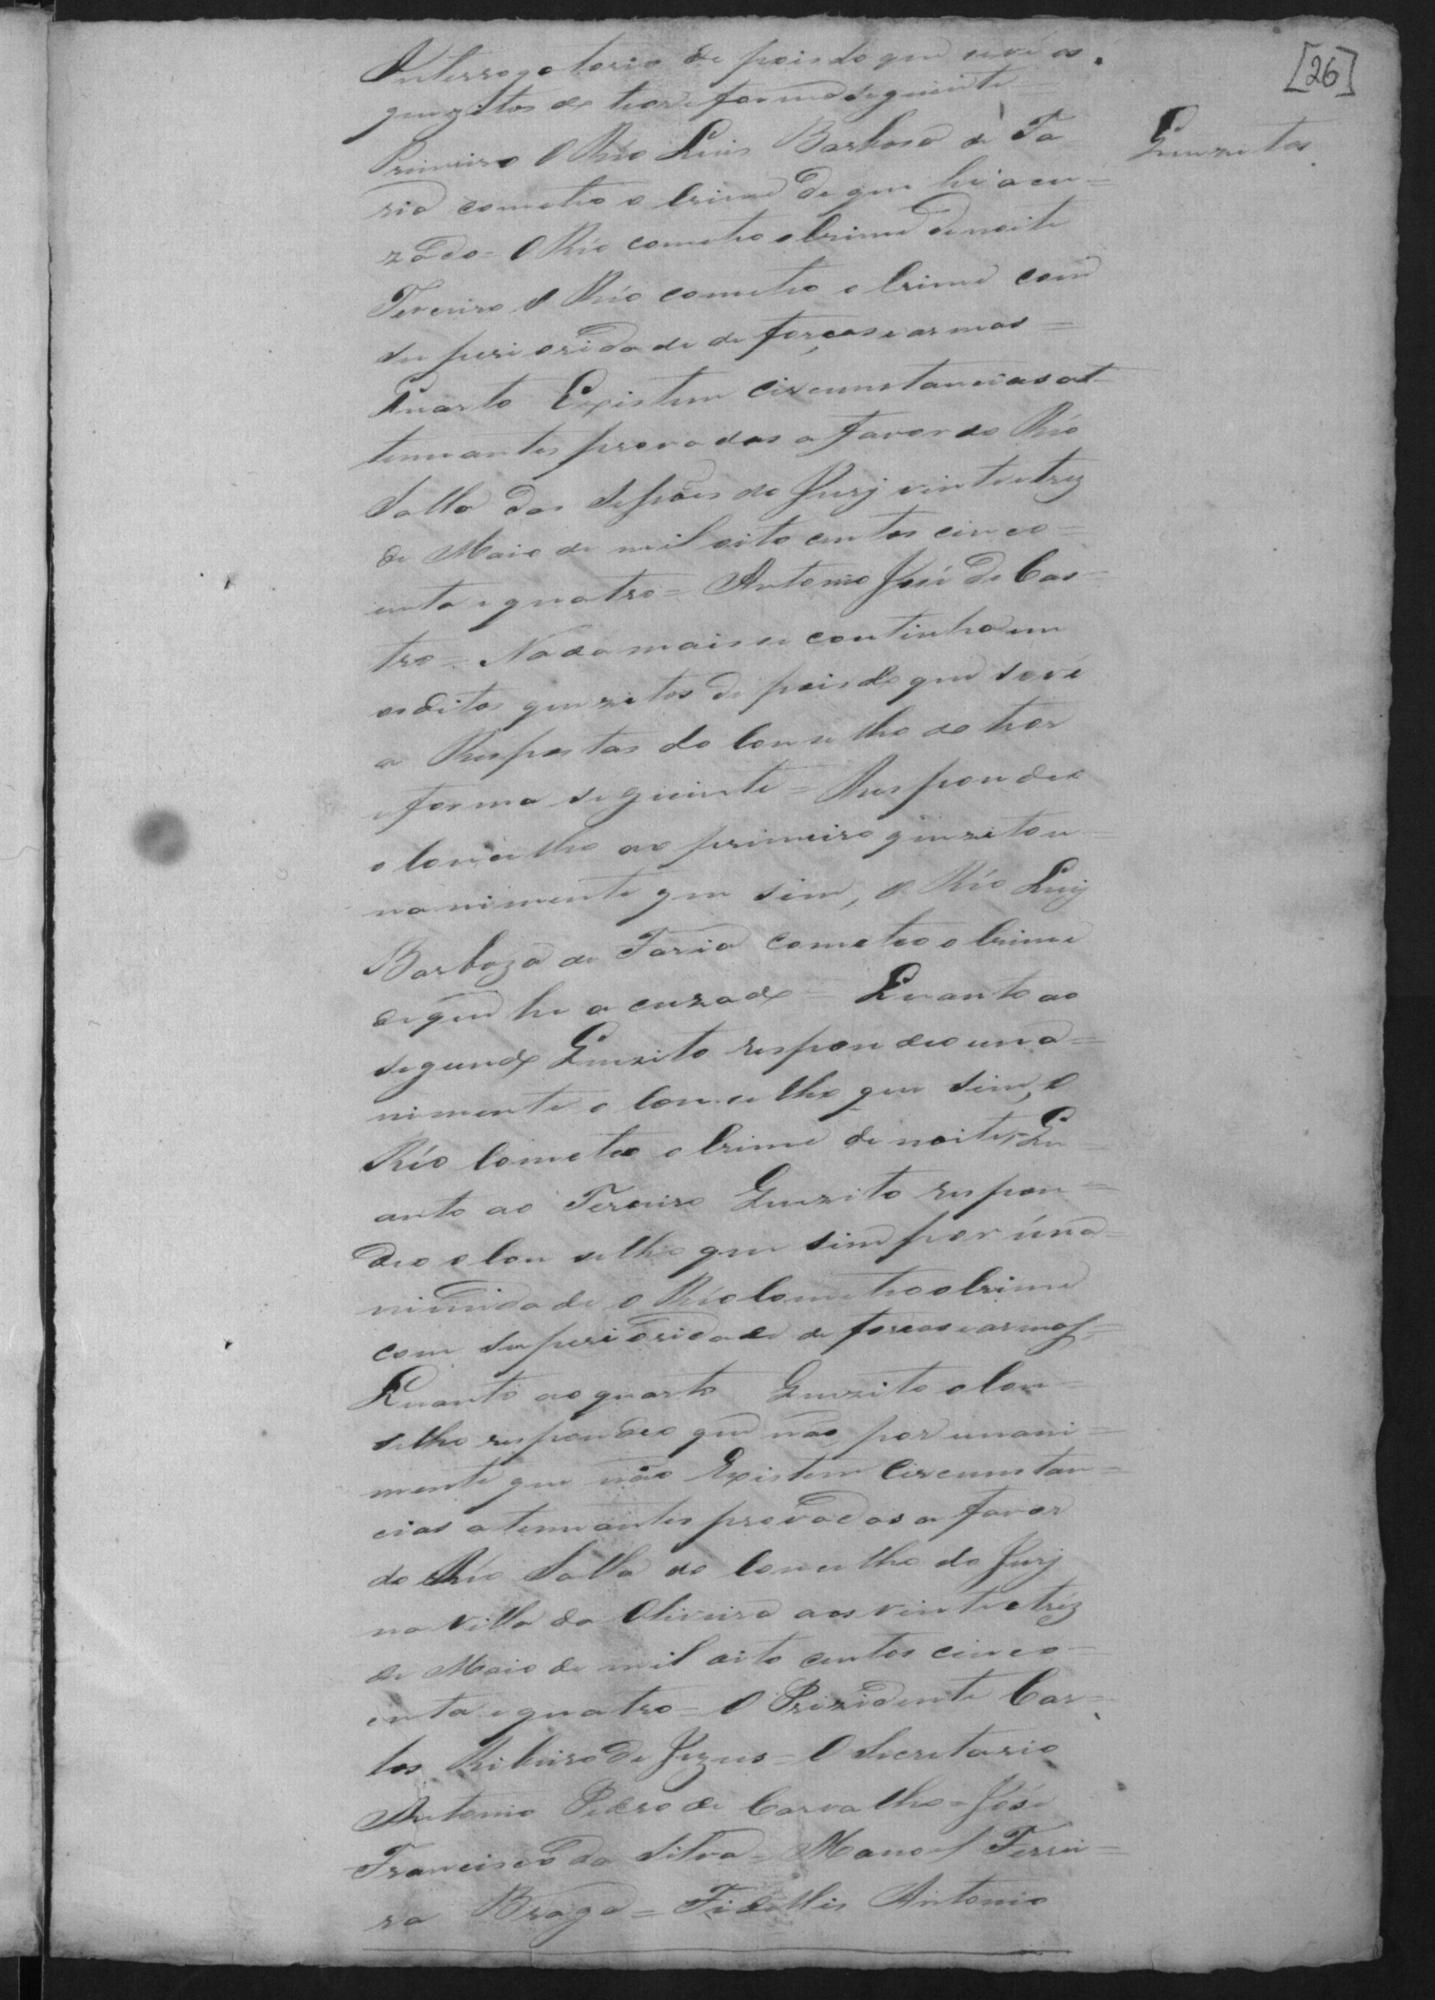 [26]
Interrogatorio de pois do que se vé os
quezitos do theor e forma seguinte =
Quezitos
Primeiro O Réo Luis Barboza de Fa
ria cometeo o crime de que hé acu=
zado = O Réo cometeo o crime de noite
Terceiro O Réo cometeo o crime com
superioridade de forças e armas =
Quarto Existem circunstancias at
tenuantes provadas a favor do Réo
Salla das Sessões do Jury vinte e trez
de Maio de mil oito centos cinco=
enta e quatro = Antonio José de Cas=
tro = Nada mais se continha em
os ditos quezitos de pois do que se vé
a Respostas do Conselho do theor
e forma seguinte = Respondeo
o Conselho ao primeiro quezito u=
nanimente que sim, o Réo Luiz
Barboza de Faria cometeo o crime
de que he acuzado = Quanto ao
segundo Quezito respondeo una=
nimente o Conselho que sim, o
Réo Cometeo o crime de noite, = Qu
anto ao Terceiro Quezito respon=
deo o Conselho que sim por úna=
nimidade o Réo Cometeo o crime
com superioridade de forcas e armas =
Quanto ao quarto Quezito o Con=
selho respondeo que não, por unani=
mente que não Existem Circunstan=
cias atenuantes provadas a favor
do Réo Salla do Conselho do Jury
na Villa da Oliveira aos vinte e tréz
de Maio de mil oito centos cinco=
enta e quatro = O Prezidente Car=
los Ribeiro de Jezus = O Secretario
Antonio Pedro de Carvalho = José
Francisco da Silva = Manoel Ferrei=
ra Braga = Fidellis Antonio